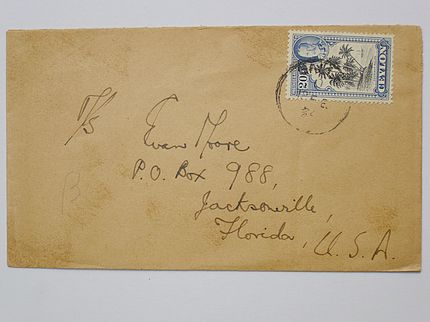 CEYLON
20
M/S
Evan Moore
P.O. Box 988,
Jacksonville,
Florida, U.S.A.